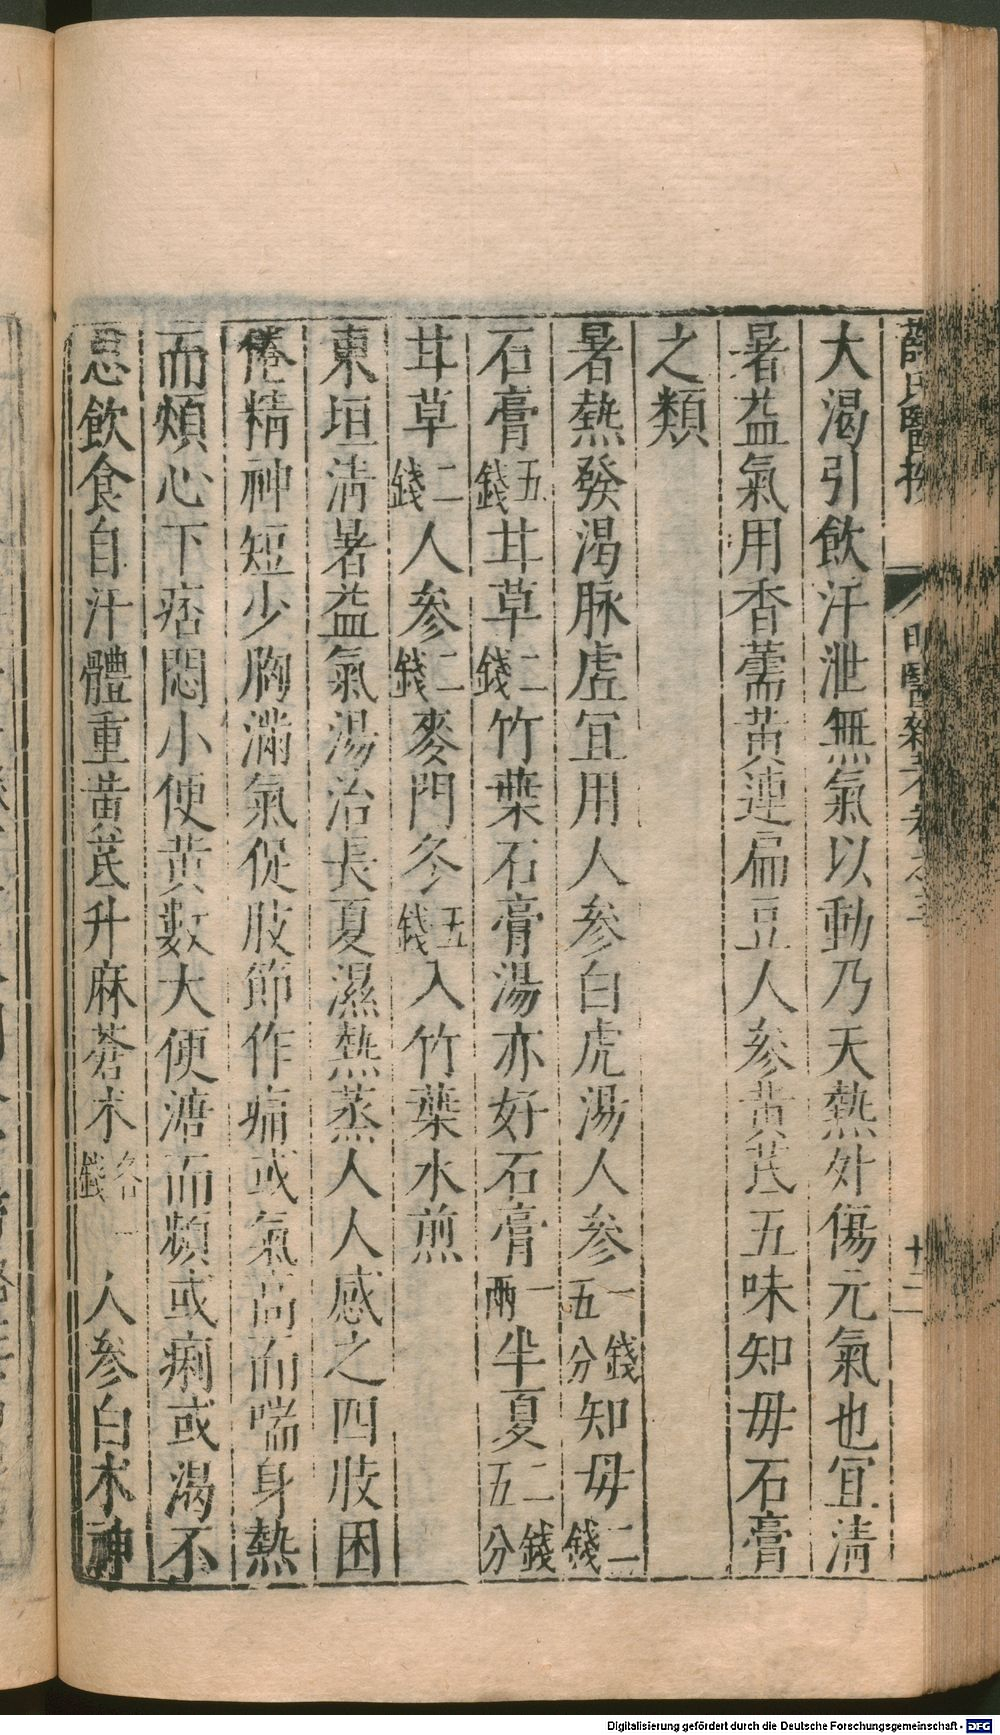 薛氏醫按 明醫雜著卷之三 十二
大渴引飲汗泄無氣以動乃天熱外傷元氣也宜清
暑益氣用香薷黃連扁豆人參黃芪五味知母石膏
之類
暑熱發渴脉虛宜用人參白虎湯人參一錢五分知母二錢
石膏五錢甘草二錢竹葉石膏湯亦好石膏一兩半夏二錢五分
甘草二錢人參二錢麥門冬五錢入竹葉水煎
東垣清暑益氣湯治長夏濕熱蒸人人感之四肢困
倦精神短少胸滿氣促肢節作痛或氣高而喘身熱
而煩心下痞悶小便黃數大便溏而頻或痢或渴不
思飲食自汗體重黃芪升麻蒼术各一錢人參白术神
Digitalisierung gefördert durch die Deutsche Forschungsgemeinschaft - DFG